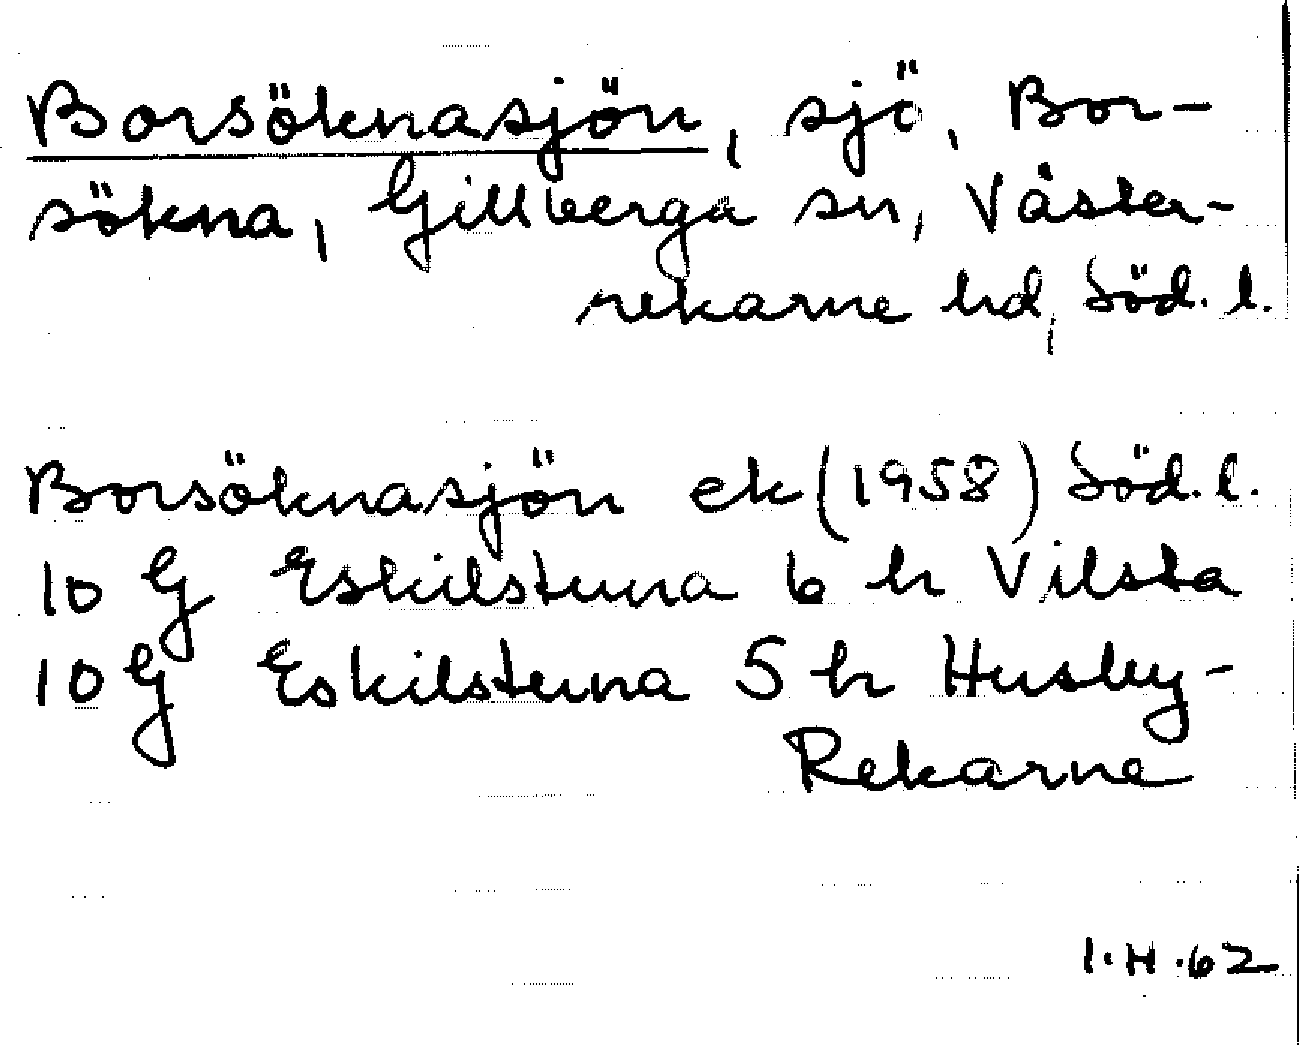 Borsöknasjön, sjö, Bor-
sökna, Gillberga sn, Väster-
rekarne hd, Söd. l.
Borsöknasjön ek (1958) Söd. l.
10 G Eskilstuna 6 h Vilsta
10 G Eskilstuna 5 h Husby-
Rekarne
I.H.62